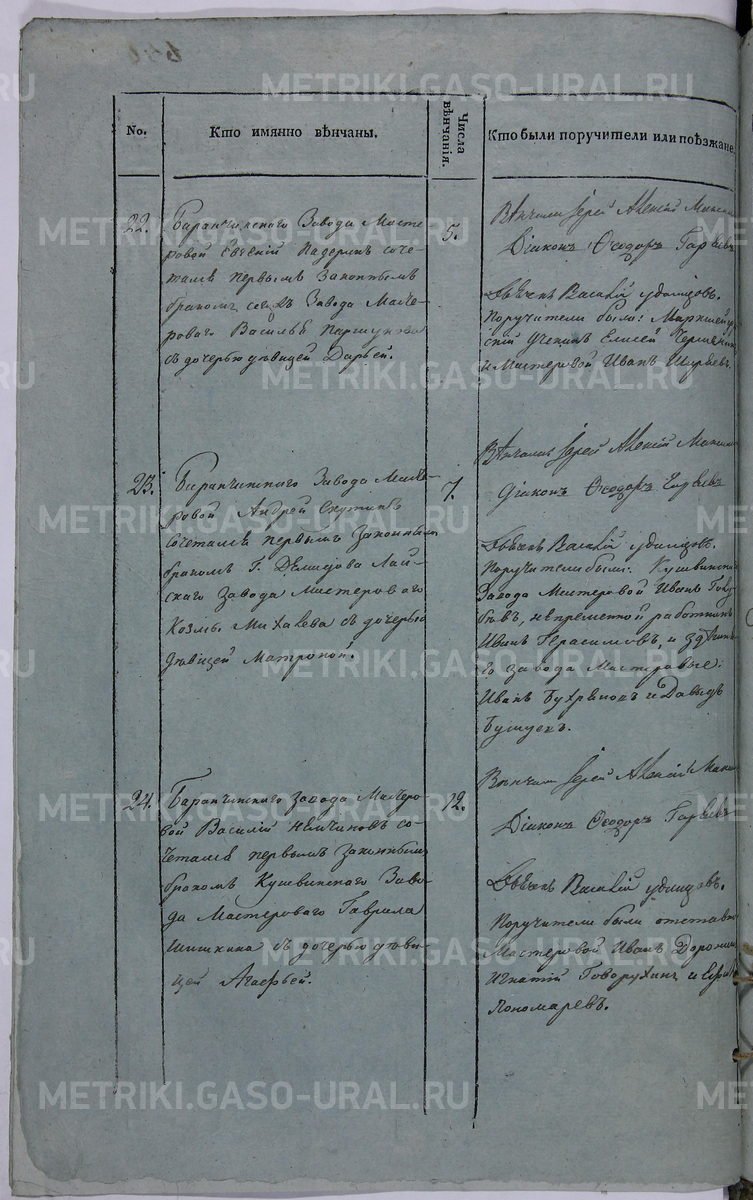 No.
Кто имянно вѣнчаны.
Числа вѣнчанія.
Кто были поручители или поѣзжане.
22.
Баранчинского Завода Масте-
ровой Евгений Падеринъ соче-
тался первымъ законнымъ
бракомъ сегожъ Завода Масте-
роваго Василья Паршукова
съ дочерью дѣвицей Дарьей.
5.
Вѣнчали Іерей Алексій
Діаконъ Ѳеодоръ
Дьячекъ Василий Удинцовъ.
Поручители были: Маркшейдер-
ский ученикъ Елисей
и Мастеровой Иванъ Ширяевъ.
23.
Баранчинского Завода Масте-
ровой Андрей Скутинъ
сочетался первымъ законнымъ
бракомъ Г. Демидова Лай-
скаго Завода Мастероваго
Козьмы Михалева съ дочерью
дѣвицей Матроной.
7.
Вѣнчали Іерей Алексій
Діаконъ Ѳеодоръ
Дьячекъ Василий Удинцовъ.
Поручители были: Кушвинскаго
Завода Мастеровой Иванъ Голу-
бевъ, непременной работникъ
Иванъ Герасимовъ, и здѣшня-
го завода Мастеровые:
Иванъ Бухряковъ и Давыдъ
24.
Баранчинского завода Мастеро-
вой Василий Немчиновъ со-
четался первымъ законнымъ
бракомъ Кушвинского Заво-
да Мастероваго Гаврила
Шишкина съ дочерью дѣви-
цей Агафьей.
12.
Вѣнчали Іерей Алексій
Діаконъ Ѳеодоръ
Дьячекъ Василий Удинцовъ.
Поручители были отставн
Мастеровой Иванъ Доронин
Игнатий Говорухинъ и
Пономаревъ.
METRIKI.GASO-URAL.RU